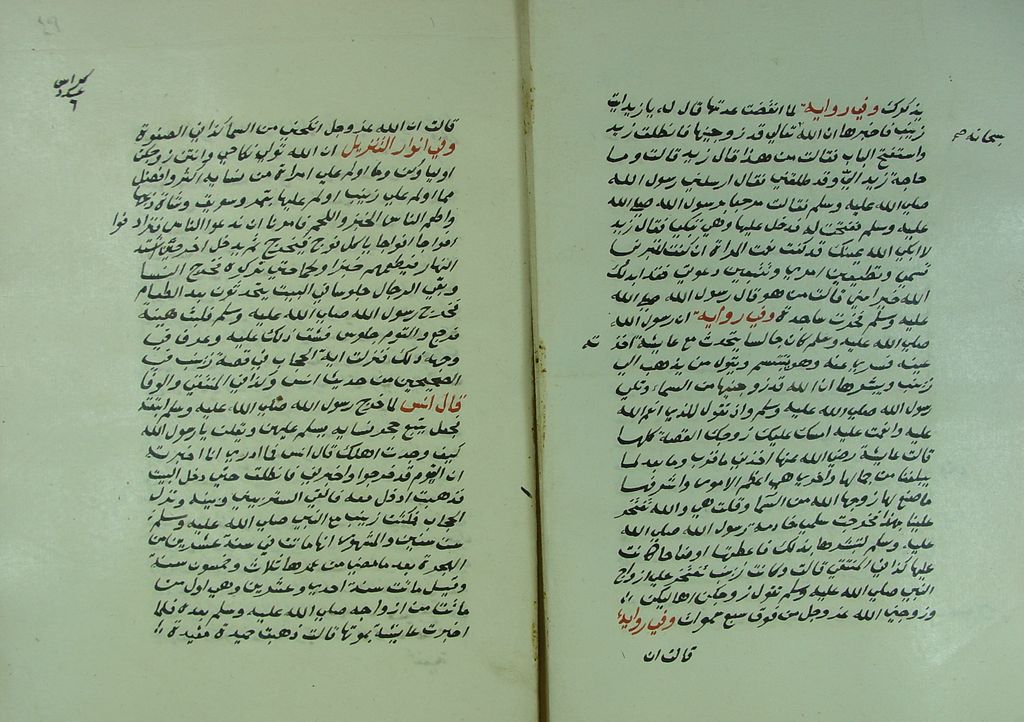 يذكرك وفي رواية لما انقضت عدتها قال له يا زيد ائت
زينب فاخبرها ان الله تعالى قد زوجنيها فانطلق زيد
سبحانه صح
واستفتح الباب فقالت من هذا قال زيد قالت وما
حاجة زيد الي وقد طلقني فقال ارسلني رسول الله
صلى الله عليه وسلم فقالت مرحبا برسول الله صلى الله
عليه وسلم ففتحت له فدخل عليها وهي تبكي فقال زيد
لا ابكى الله عينك قد كنت نعت المراة ان كنت لتبرين
قسمي وتطيعين امري وتتبعين دعوتي فقد ابدلك
الله خيرا مني قالت من هو قال رسول الله صلى الله
عليه وسلم فخرت ساجدة وفي رواية ان رسول الله
صلى الله عليه وسلم كان جالسا يتحدث مع عايشة اخذ
ته
عنه وهو يتبسم ويقول من يذهب الى
زينب ويبشرها ان الله قد زوجنيها من السماء وتلى
رسول الله صلى الله عليه وسلم واذ تقول للذي انعم الله
عليه وانعمت عليه امسك عليك زوجك القصة كلها
قالت عايشة رضي الله عنها اخذني ما قرب وما بعد لما
يبلغنا من جمالها واخرى هي اعظم الامور واشرفها
ما صنع لها زوجها الله من السما وقلت هي والله تفتخر
علينا بهذا فخرجت سلمى خادمة رسول الله صلى الله
عليه وسلم لتبشرها بذلك فاعطتها اوضاحا كانت
عليها كذا في المنتقى قالت وكانت زينب تفتخر على ازواج
النبي صلى الله عليه وسلم تقول زوجكن اهاليكن
وزوجني الله عز وجل من فوق سبع سموات وفي رواية
قالت ان
كراس
٦
قالت ان الله عز وجل انكحني من السما كذا في الصفوة
وفي انوار التنزيل ان الله تولى نكاحي وانتن زوجكن
اولياوكن وما اولم على امراة من نسايه اكثر وافضل
مما اولم على زينب اولم عليها بتمر وسويق وشاة ذبحها
واطعم الناس الخبز واللحم فامرنا ان ندعوا الناس فترادفوا
افواجا افواجا ياكل فوج فيخرج ثم يدخل اخر حتى اشتد
النهار فيطعمهم خبزا ولحما حتى تركوه فخرج الناس
وبقي الرجال جلوسا في البيت يتحدثون بعد الطعام
فخرج رسول الله صلى الله عليه وسلم فلبث هنية
فرجع والقوم جلوس فشق ذلك عليه وعرف في
وجهه ذلك فنزلت اية الحجاب في قصة زينب في
الصحيحين من حديث انس وكذا في المنتقى والوفا
قال انس لما خرج رسول الله صلى الله عليه وسلم
فجعل يتبع حجر نسايه يسلم عليهن ويقلن يا رسول الله
كيف وجدت اهلك قال انس فما ادري انا اخبرته
ان القوم قد خرجوا واخبرني فانطلق حتى دخل البيت
فذهبت ادخل معه فالقى الستر بيني وبينه ونزل
الحجاب فمكثت زينب مع النبي صلى الله عليه وسلم
ست سنين والمشهور انها ماتت في سنة عشرين من
الهجرة بعد ما مضى من عمرها ثلاث وخمسون سنة
وقيل ماتت سنة احدى وعشرين وهي اول من
ماتت من ازواجه صلى الله عليه وسلم بعده فلما
اخبرت عايشة بموتها قالت ذهبت حميدة مفيدة